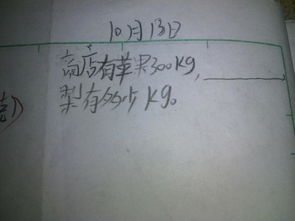 10月13日
商店有苹果300kg，
梨有多少kg。